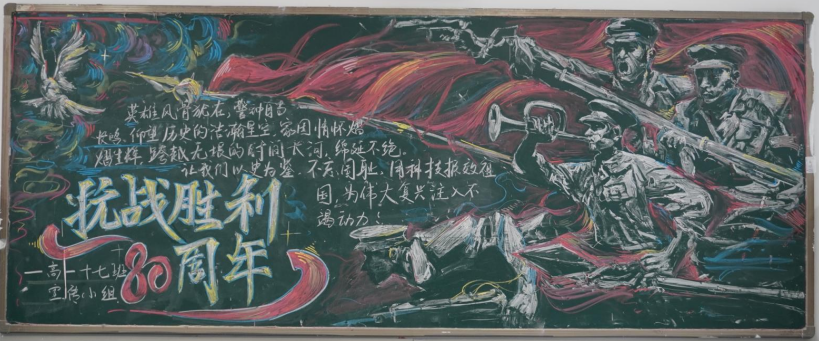 英雄风骨犹在，警钟自当
长鸣。仰望历史的浩瀚星空，家国情怀熠
熠生辉，跨越无垠的时间长河，绵延不绝。
让我们以史为鉴，不忘国耻，用科技报效祖
国，为伟大复兴注入不
竭动力！
抗战胜利
80周年
高一十七班
宣传小组